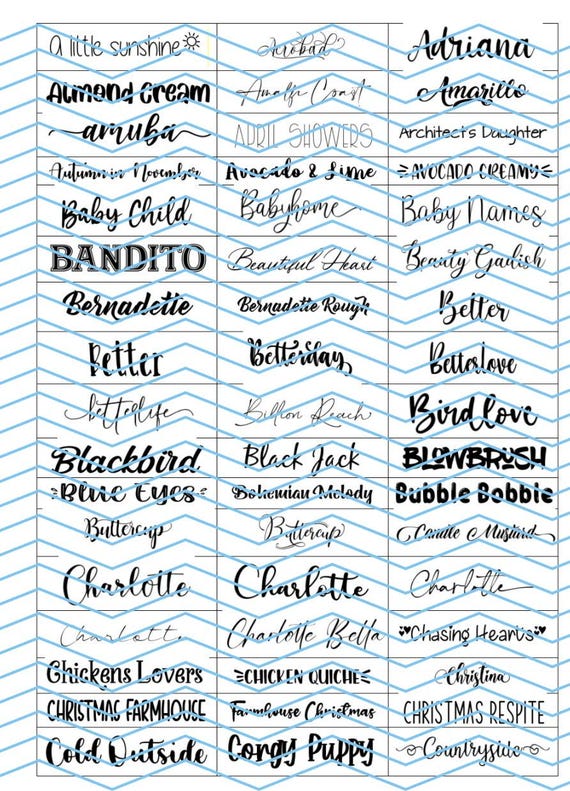 A little sunshine Acrobad Adriana
Almond Cream Amalfi Coast Amarillo
aruba APRIL SHOWERS Architect's Daughter
Autumn in November Avocado & Lime AVOCADO CREAMY
Baby Child Babyhome Baby Names
BANDITO Beautiful Heart Beauty Gadish
Bernadette Bernadette Rough Better
Better Betterday Betterlove
betterlife Billion Reach Birdlove
Blackbird Black Jack BLOWBRUSH
Blue Eyes Bohemian Melody Bubble Bobbie
Buttercup Buttercup Candle Mustard
Charlotte Charlotte Charlotte
Charlotte Charlotte Bella Chasing Hearts
Chickens Lovers CHICKEN QUICHE Christina
CHRISTMAS FARMHOUSE Farmhouse Christmas CHRISTMAS RESPITE
Cold Outside Corgy Puppy Countryside